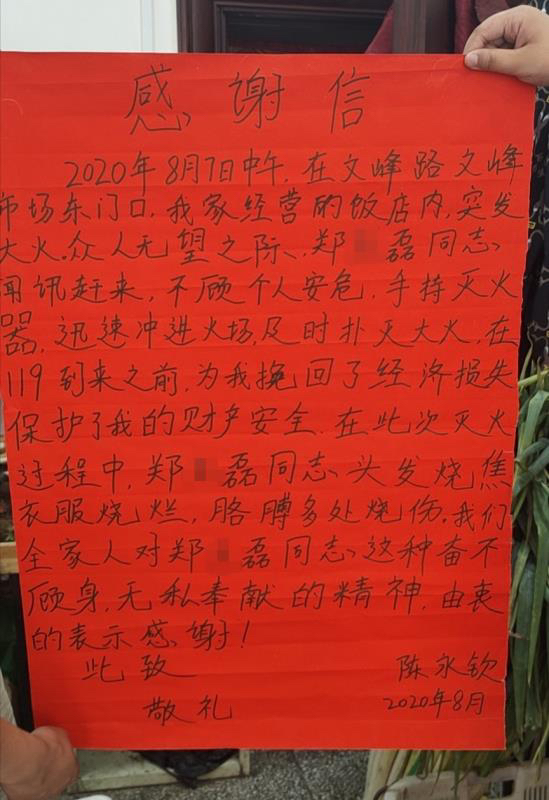 感谢信
2020年8月7日中午，在文峰路文峰
市场东门口，我家经营的饭店内，突发
大火，众人无望之际，郑磊同志
闻讯赶来，不顾个人安危，手持灭火
器，迅速冲进火场，及时扑灭大火，在
119到来之前，为我挽回了经济损失
保护了我的财产安全。在此次灭火
过程中，郑磊同志头发烧焦
衣服烧烂，胳膊多处烧伤，我们
全家人对郑磊同志这种奋不
顾身，无私奉献的精神，由衷
的表示感谢！
此致 陈永钦
敬礼 2020年8月